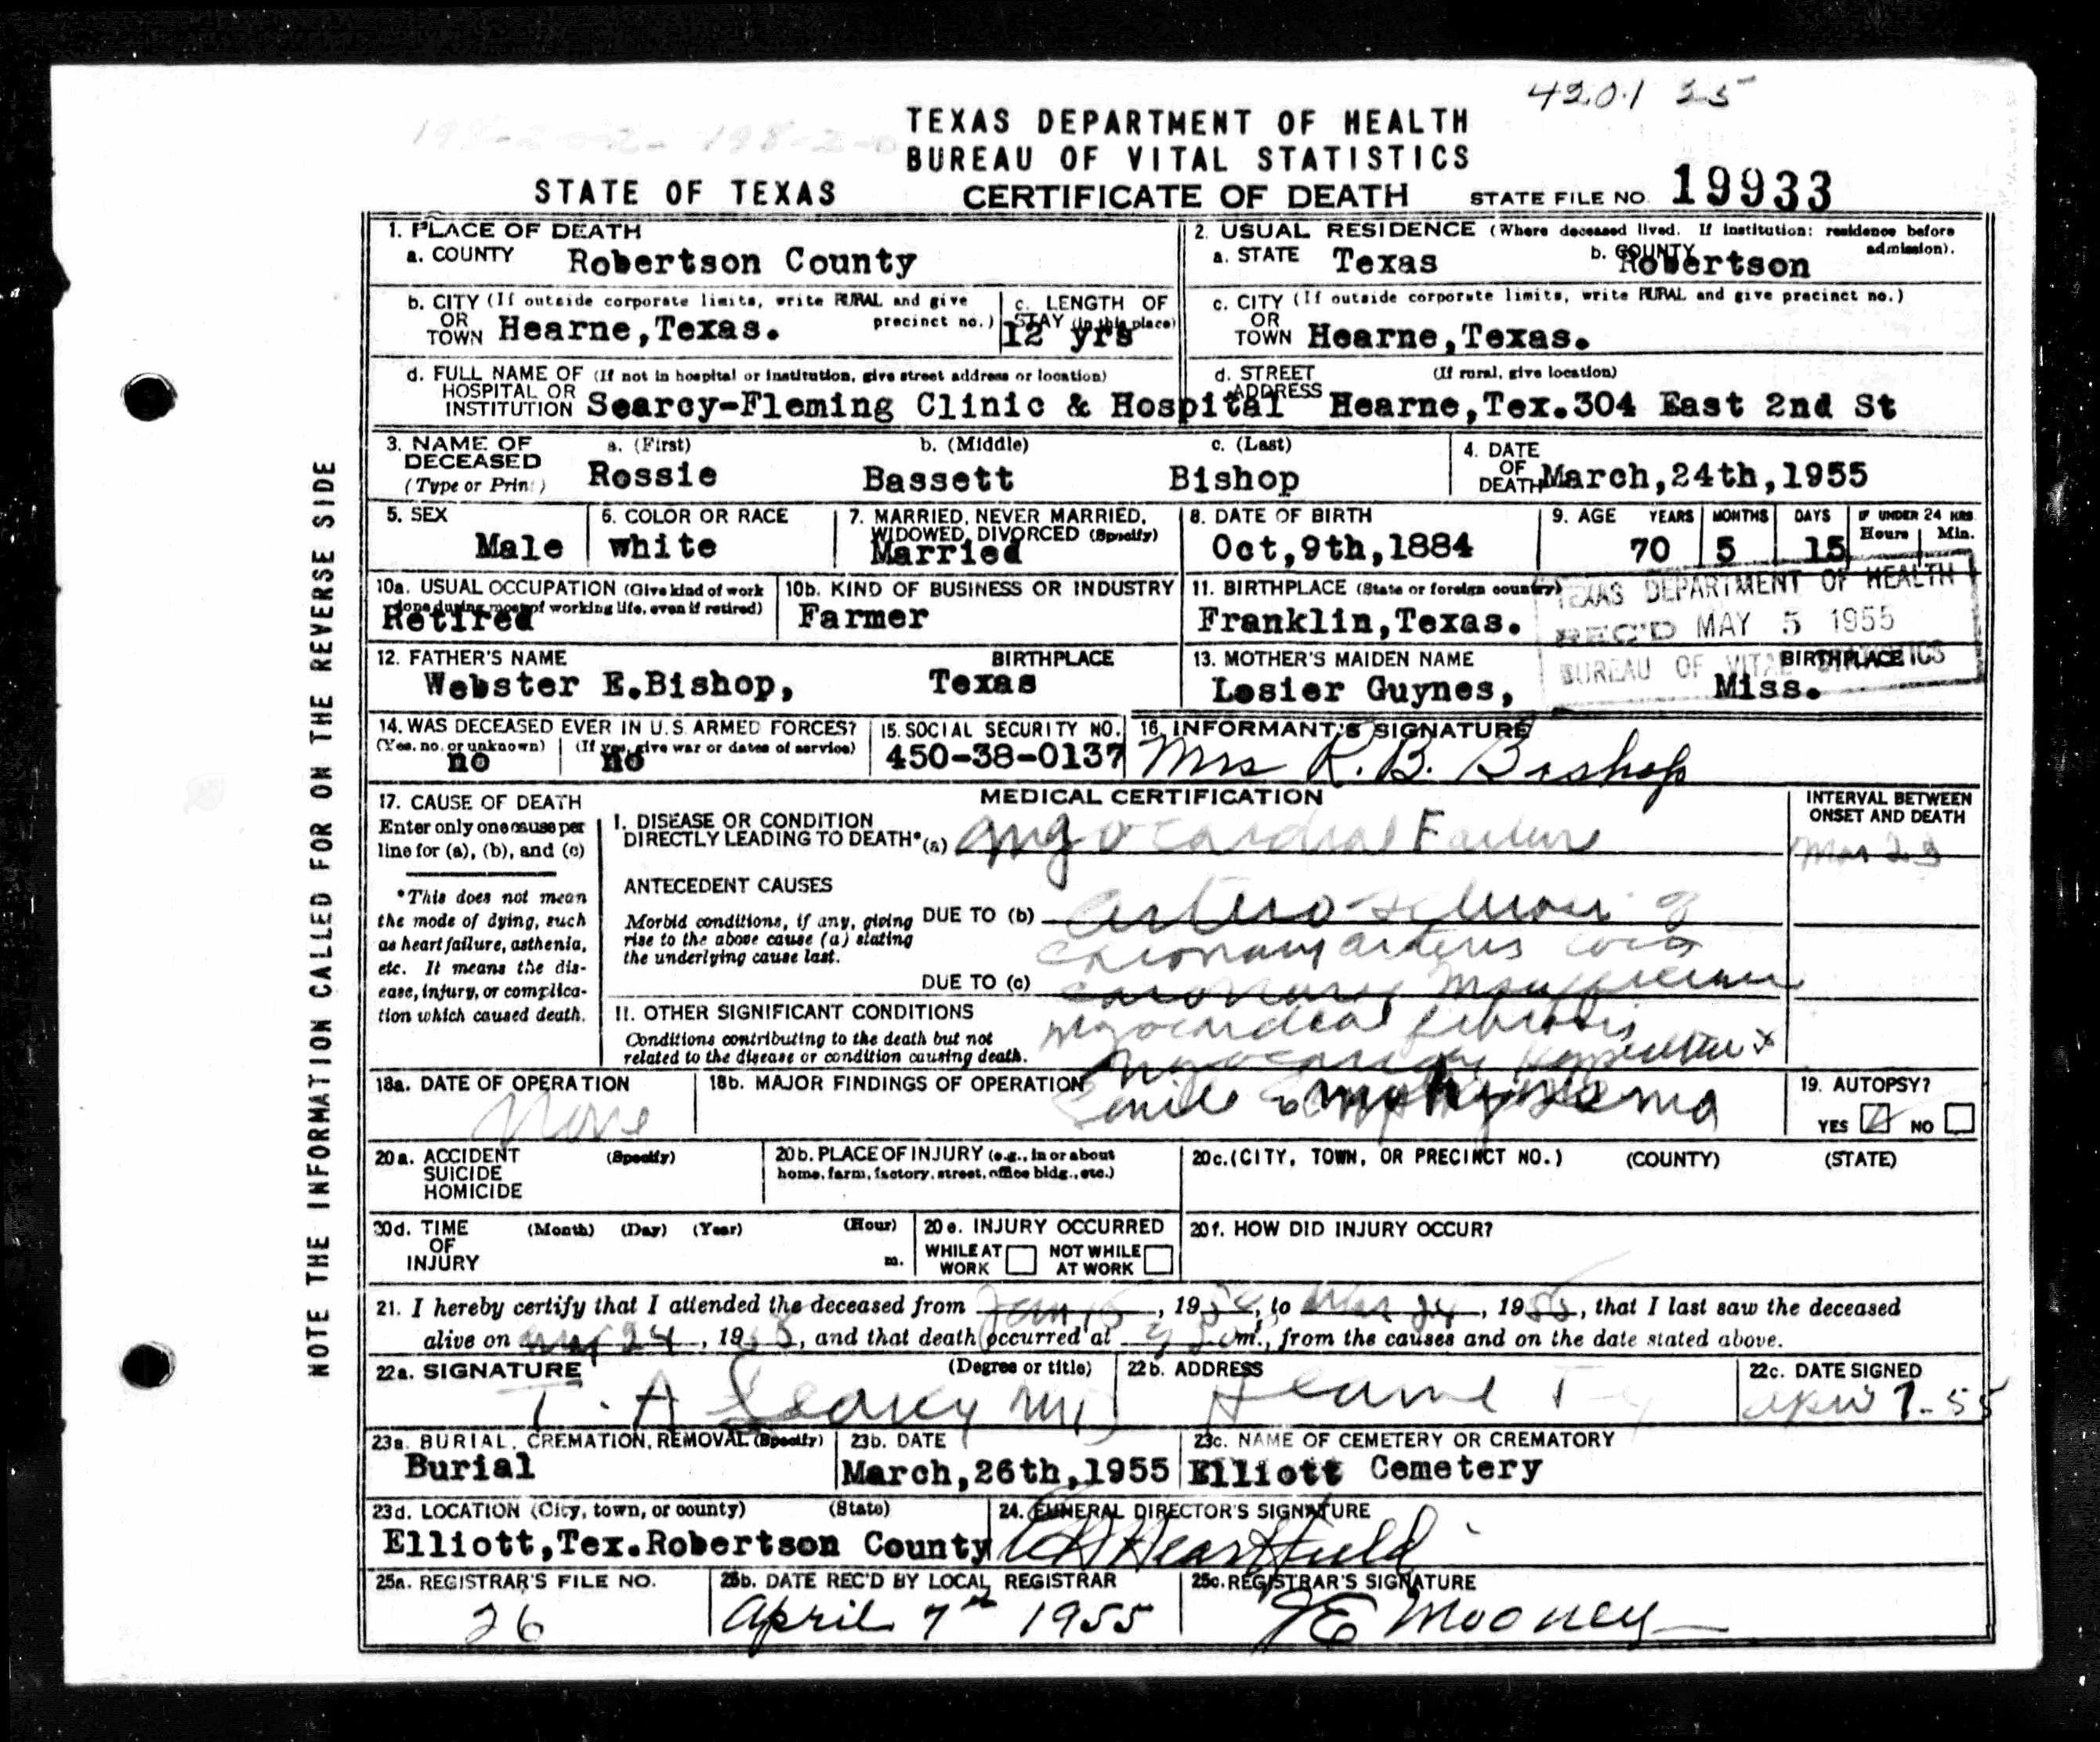 4201 25
TEXAS DEPARTMENT OF HEALTH
BUREAU OF VITAL STATISTICS
STATE OF TEXAS CERTIFICATE OF DEATH STATE FILE NO. 19933
NOTE THE INFORMATION CALLED FOR ON THE REVERSE SIDE
1. PLACE OF DEATH
a. COUNTY Robertson County
2. USUAL RESIDENCE (Where deceased lived. If institution: residence before admission).
a. STATE Texas b. COUNTY Robertson
b. CITY (If outside corporate limits, write RURAL and give precinct no.)
OR TOWN Hearne,Texas.
c. LENGTH OF STAY (in this place) 12 yrs
c. CITY (If outside corporate limits, write RURAL and give precinct no.)
OR TOWN Hearne,Texas.
d. FULL NAME OF (If not in hospital or institution, give street address or location)
HOSPITAL OR INSTITUTION Searcy-Fleming Clinic & Hospital
d. STREET ADDRESS (If rural, give location)
Hearne,Tex.304 East 2nd St
3. NAME OF DECEASED (Type or Print)
a. (First) b. (Middle) c. (Last)
Rossie Bassett Bishop
4. DATE OF DEATH March,24th,1955
5. SEX Male
6. COLOR OR RACE white
7. MARRIED, NEVER MARRIED, WIDOWED, DIVORCED (Specify) Married
8. DATE OF BIRTH Oct,9th,1884
9. AGE YEARS MONTHS DAYS IF UNDER 24 HRS. Hours Min.
70 5 15
10a. USUAL OCCUPATION (Give kind of work done during most of working life, even if retired) Retired
10b. KIND OF BUSINESS OR INDUSTRY Farmer
11. BIRTHPLACE (State or foreign country) Franklin,Texas.
TEXAS DEPARTMENT OF HEALTH
REC'D MAY 5 1955
BUREAU OF VITAL STATISTICS
12. FATHER'S NAME BIRTHPLACE
Webster E.Bishop, Texas
13. MOTHER'S MAIDEN NAME BIRTHPLACE
Lesier Guynes, Miss.
14. WAS DECEASED EVER IN U.S. ARMED FORCES?
(Yes, no, or unknown) (If yes, give war or dates of service)
no no
15. SOCIAL SECURITY NO. 450-38-0137
16. INFORMANT'S SIGNATURE
Mrs R. B. Bishop
17. CAUSE OF DEATH
Enter only one cause per line for (a), (b), and (c)
*This does not mean the mode of dying, such as heart failure, asthenia, etc. It means the disease, injury, or complication which caused death.
MEDICAL CERTIFICATION
INTERVAL BETWEEN ONSET AND DEATH
I. DISEASE OR CONDITION DIRECTLY LEADING TO DEATH* (a) Myocardial Failure
Mar 23
ANTECEDENT CAUSES
Morbid conditions, if any, giving rise to the above cause (a) stating the underlying cause last.
DUE TO (b) Arterio-sclerosis of
coronary arteries
DUE TO (c) coronary insufficiency
II. OTHER SIGNIFICANT CONDITIONS
Conditions contributing to the death but not related to the disease or condition causing death.
myocardial fibrosis
Senile emphysema
18a. DATE OF OPERATION None
18b. MAJOR FINDINGS OF OPERATION
19. AUTOPSY? YES NO
20a. ACCIDENT SUICIDE HOMICIDE (Specify)
20b. PLACE OF INJURY (e.g., in or about home, farm, factory, street, office bldg., etc.)
20c. (CITY, TOWN, OR PRECINCT NO.) (COUNTY) (STATE)
20d. TIME OF INJURY (Month) (Day) (Year) (Hour) m.
20e. INJURY OCCURRED
WHILE AT WORK NOT WHILE AT WORK
20f. HOW DID INJURY OCCUR?
21. I hereby certify that I attended the deceased from Jan, 19, to Mar 24, 1955, that I last saw the deceased
alive on Mar 24, 1955, and that death occurred at m., from the causes and on the date stated above.
22a. SIGNATURE (Degree or title)
T. A Searcy MD
22b. ADDRESS
Hearne Tex
22c. DATE SIGNED
April 7-55
23a. BURIAL, CREMATION, REMOVAL (Specify) Burial
23b. DATE March,26th,1955
23c. NAME OF CEMETERY OR CREMATORY Elliott Cemetery
23d. LOCATION (City, town, or county) (State)
Elliott,Tex.Robertson County
24. FUNERAL DIRECTOR'S SIGNATURE
Heartfield
25a. REGISTRAR'S FILE NO. 26
25b. DATE REC'D BY LOCAL REGISTRAR April 7th 1955
25c. REGISTRAR'S SIGNATURE JE Mooney